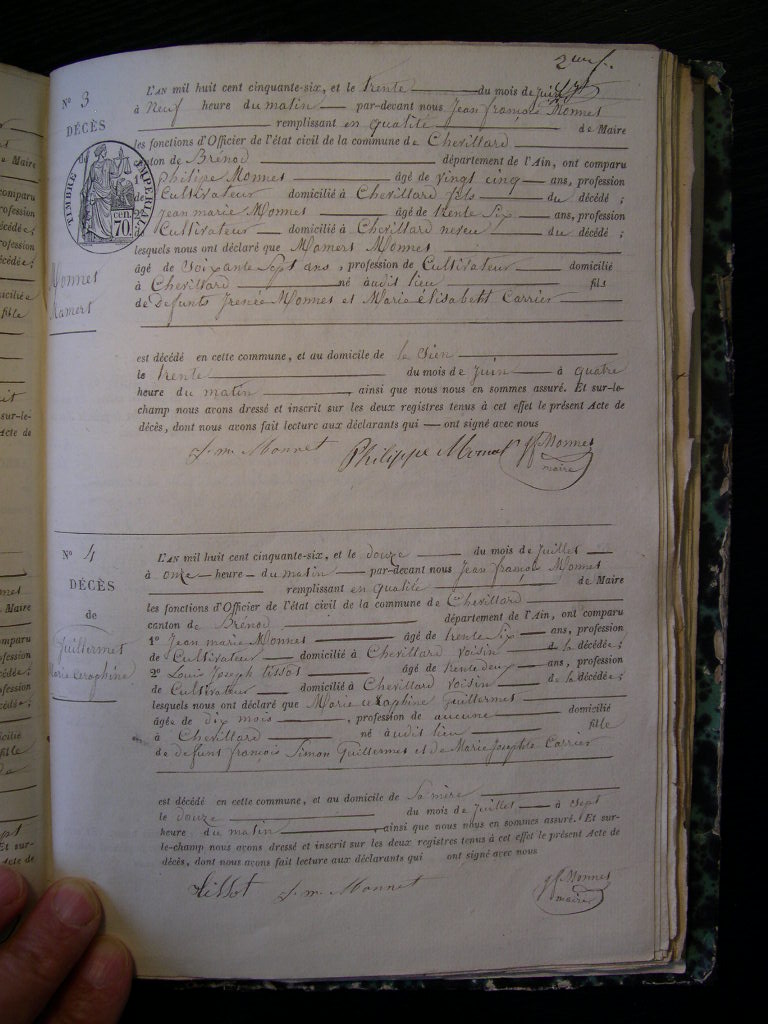 N° 3
DÉCÈS
TIMBRE IMPÉRIAL
70. cen.
Monnet
Mamert
L'AN mil huit cent cinquante-six, et le trente du mois de juin
à Neuf heure du matin par-devant nous Jean françois Monnet
remplissant en qualité de Maire
les fonctions d'Officier de l'état civil de la commune de Chevillard
canton de Brénod département de l'Ain, ont comparu
1° Philipe Monnet âgé de vingt cinq ans, profession
de Cultivateur domicilié à Chevillard fils du décédé ;
2° Jean marie Monnet âgé de trente six ans, profession
Cultivateur domicilié à Chevillard neveu du décédé ;
lesquels nous ont déclaré que Mamert Monnet
âgé de soixante sept ans, profession de Cultivateur domicilié
à Chevillard né audit lieu fils
de Defunts Irenée Monnet et Marie élisabett Carrier
est décédé en cette commune, et au domicile de le sien
le trente du mois de juin à quatre
heure du matin, ainsi que nous nous en sommes assuré. Et sur-le-
champ nous avons dressé et inscrit sur les deux registres tenus à cet effet le présent Acte de
décès, dont nous avons fait lecture aux déclarants qui ont signé avec nous
J. m. Monnet Philippe Monnet jf Monnet
maire
N° 4
DÉCÈS
de
Guillermet
Marie ceraphine
L'AN mil huit cent cinquante-six, et le douze du mois de juillet
à onze heure du matin par-devant nous Jean françois Monnet
remplissant en qualité de Maire
les fonctions d'Officier de l'état civil de la commune de Chevillard
canton de Brénod département de l'Ain, ont comparu
1° Jean marie Monnet âgé de trente six ans, profession
de Cultivateur domicilié à Chevillard voisin de la décédée ;
2° Louis Joseph tissot âgé de trente deux ans, profession
de Cultivateur domicilié à Chevillard voisin de la décédée ;
lesquels nous ont déclaré que Marie ceraphine Guillermet
âgée de dix mois, profession de aucune domicilié
à Chevillard né audit lieu fille
de defunt françois Simon Guillermet et de Marie Josephte Carrier
est décédé en cette commune, et au domicile de sa mère
le douze du mois de juillet à sept
heure du matin, ainsi que nous nous en sommes assuré. Et sur-
le-champ nous avons dressé et inscrit sur les deux registres tenus à cet effet le présent Acte de
décès, dont nous avons fait lecture aux déclarants qui ont signé avec nous
tissot J. m. Monnet jf Monnet
maire